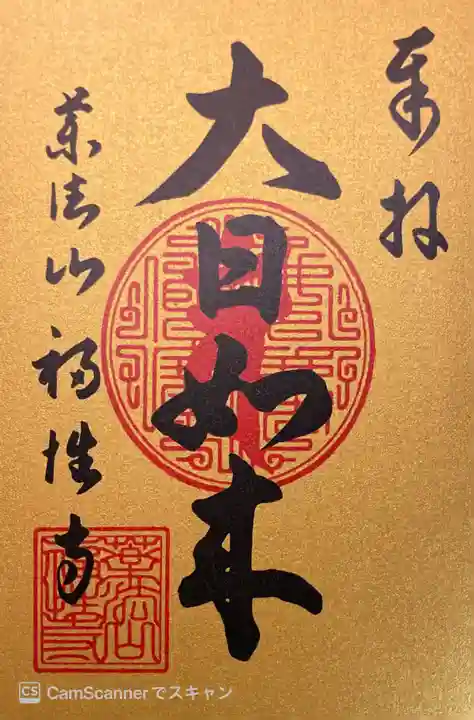 奉拝
大日如来
福性寺
CS CamScannerでスキャン